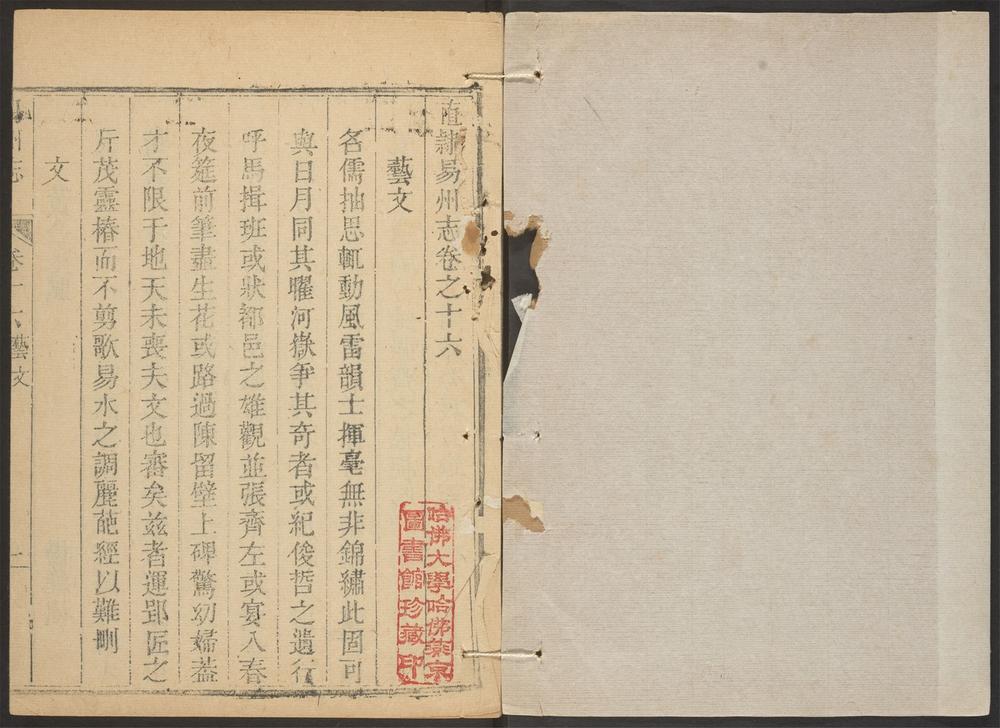 直隸易州志卷之十六
藝文
名儒抽思輒動風雷韻士揮毫無非錦繡此固可
與日月同其曜河嶽爭其奇者或紀俊哲之遺行
呼馬揖班或狀都邑之雄觀並張齊左或宴入春
夜筵前筆盡生花或路過陳留壁上碑驚幼婦蓋
才不限于地天未喪夫文也審矣茲者運郢匠之
斤茂靈椿而不剪歌易水之調麗葩經以難刪
文
州志 卷十六 藝文 一
哈佛大學哈佛燕京
圖書館珍藏印